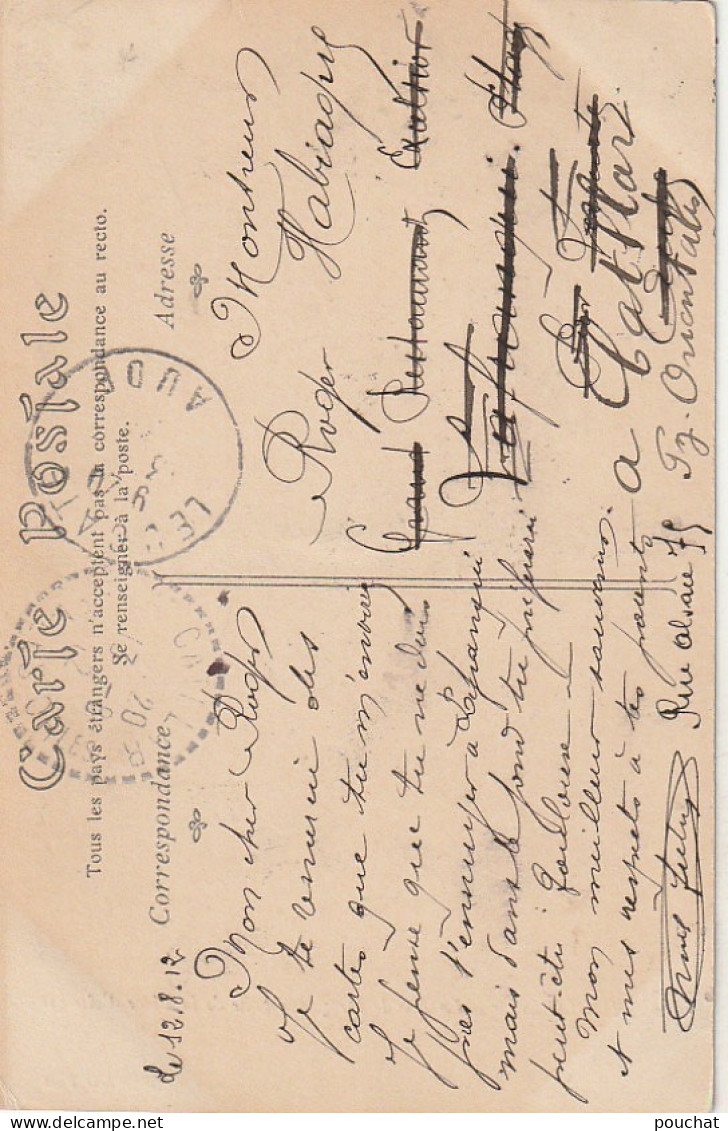 Carte Postale
Tous les pays étrangers n'acceptent pas la correspondance au recto.
Se renseigner à la poste.
Correspondance
Adresse
Le 12.8.12
Mon cher Roger
Je te remercie des
cartes que tu m'envoies
Je pense que tu ne dois
pas t'ennuyer à
mais dans le fond tu
peut-être Toulouse
Mon meilleur souvenir
et mes respects à tes parents
Rue Alsace 75
Monsieur
Roger
Grand Restaurant
a Catllar
Py. Orientales
AUD
pouchat